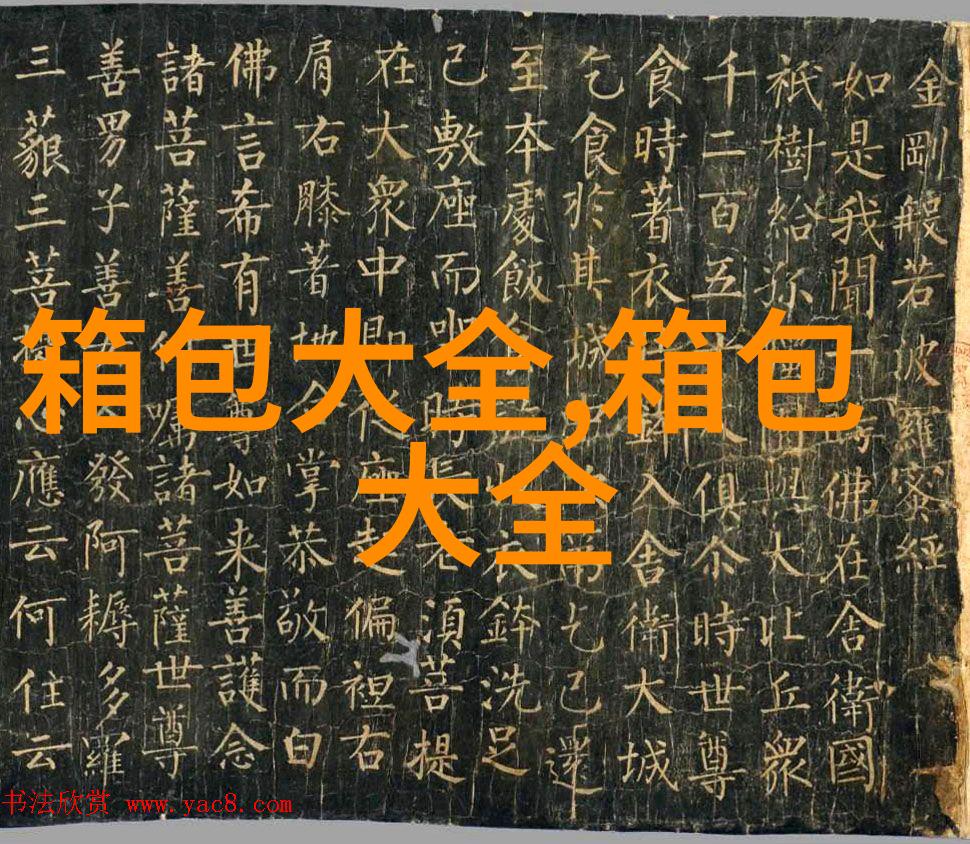 箱包大全,箱包
大全
金剛般若波羅蜜經
如是我聞一時佛在舍衛國
祇樹給孤獨園與大比丘衆
千二百五十人俱尒時世尊
食時著衣持鉢入舍衛大城
乞食於其城乞已還
至本處飯食衣鉢洗足
已敷座而坐時長老須菩提
在大衆中即從座起偏袒右
肩右膝著地合掌恭敬而白
佛言希有世尊如来善護念
諸菩薩善付囑諸菩薩世尊
善男子善女人發阿耨多羅
三藐三菩提心應云何住云
书法欣赏 www.yac8.com